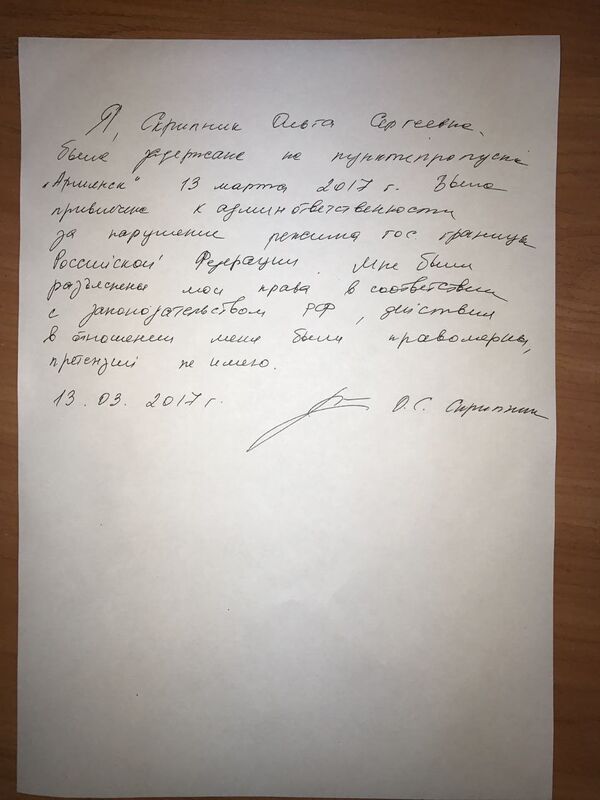 Я, Скрипник Ольга Сергеевна,
была задержана на пункте пропуска
"Армянск" 13 марта 2017 г. Была
привлечена к админответственности
за нарушение режима гос границы
Российской Федерации. Мне были
разъяснены мои права в соответствии
с законодательством РФ, действия
в отношении меня были правомерны,
претензий не имею.
13.03.2017 г. О.С. Скрипник